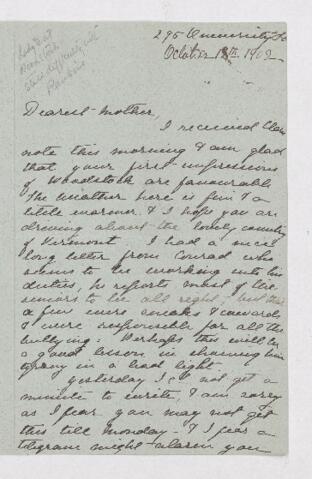 295 University St
October 18th 1902
Dearest Mother,
I received
note this morning & am glad
that your first impressions
of Woodstock are favourable
The weather here is fine & a
little warmer. & I hope you are
driving about the lovely country
of Vermont I had a nice
long letter from Conrad who
seems to be working into his
duties, he reports most of the
seniors to be all right, but that
a few were sneaks & cowards
& were responsible for all the
bullying. Perhaps this will be
a good lesson in
in a bad light.
Yesterday I did not get a
minute to write, I am sorry
as I fear you may not get
this till Monday. & I fear a
telegram might alarm you